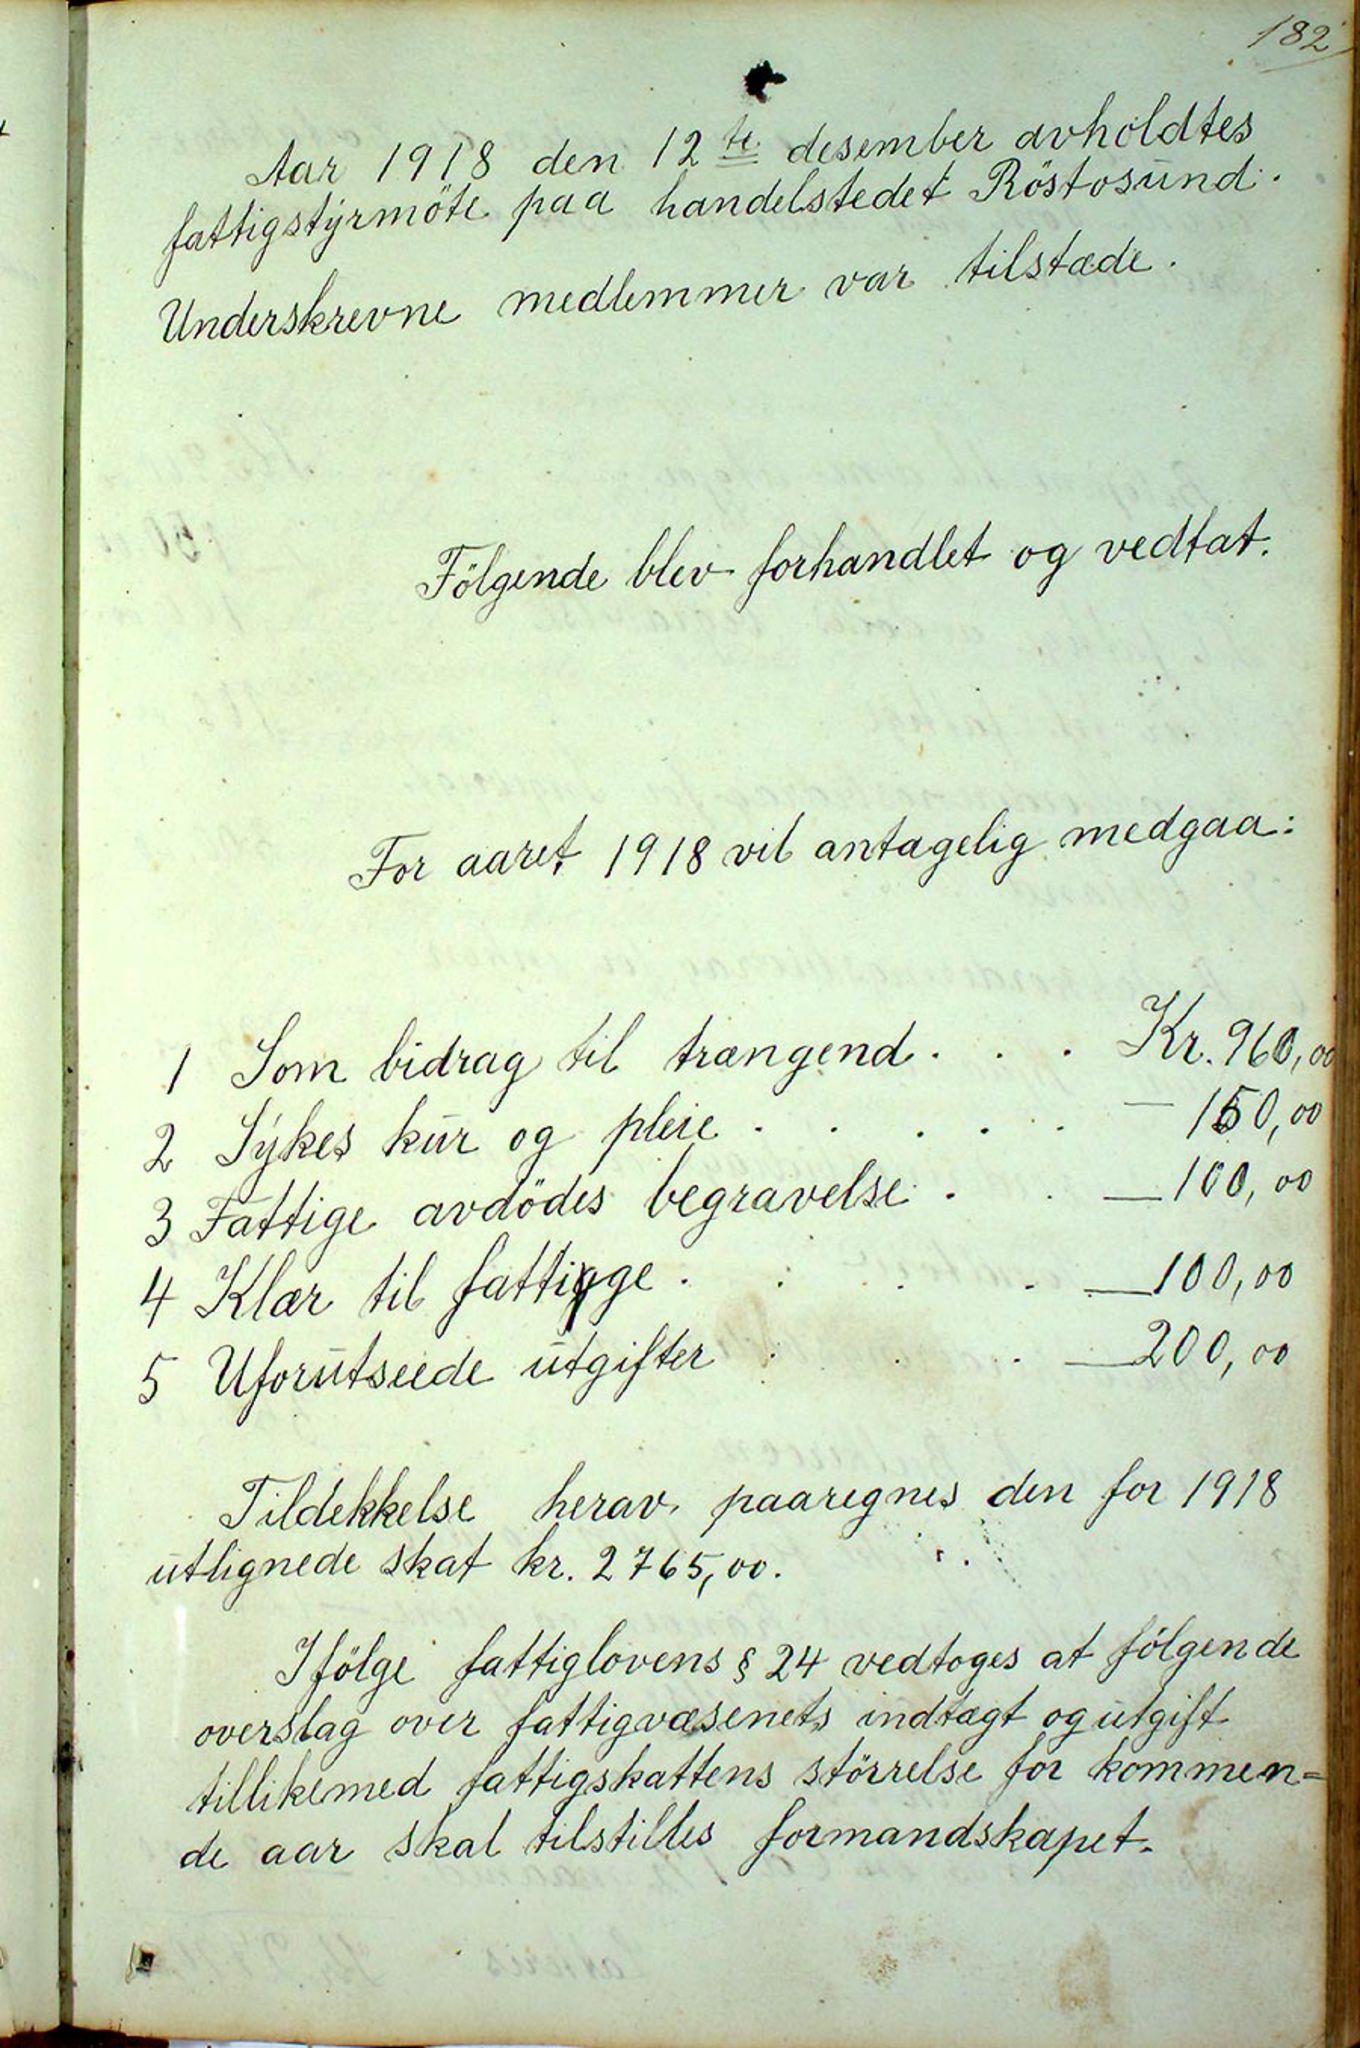 182
Aar 1918 den 12te desember avholdtes
fattigstyrmöte paa handelstedet Röstosund.
Underskrevne medlemmer var tilstæde.
Fölgende blev forhandlet og vedtat.
For aaret 1918 vil antagelig medgaa:
1 Som bidrag til trængend . . . Kr. 960,00
2 Sykes kur og pleie . . . . . — 150,00
3 Fattige avdödes begravelse . . — 100,00
4 Klær til fattigge . . . . — 100,00
5 Uforutseede utgifter . . . — 200,00
Tildekkelse herav paaregnes den for 1918
utlignede skat kr. 2765,00.
Ifölge fattiglovens § 24 vedtoges at fölgende
overslag over fattigvæsenets indtægt og utgift
tillikemed fattigskattens störrelse for kommen=
de aar skal tilstilles formandskapet.